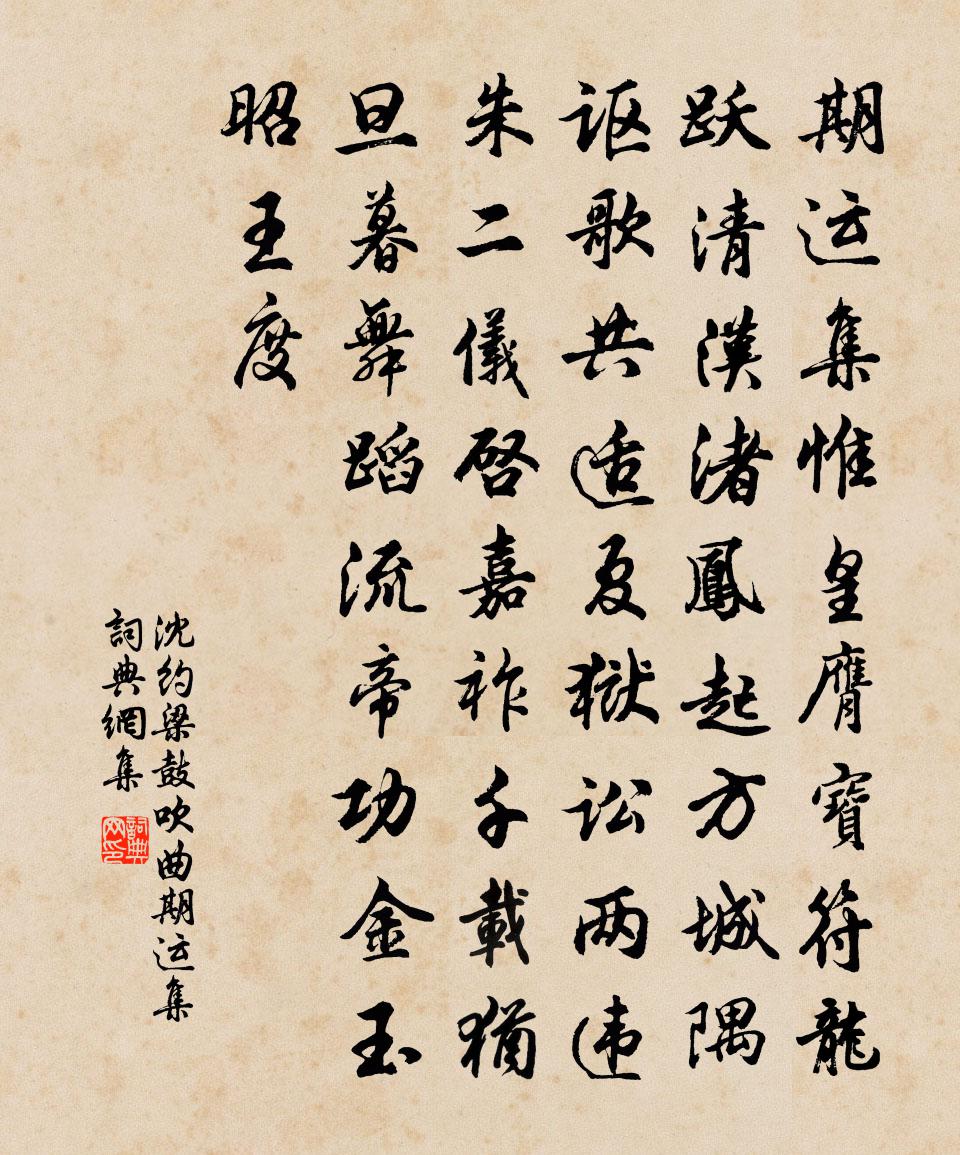 期运集惟皇膺寶符龍
跃清漢渚鳳起方城隅
讴歌共适夏獄讼两违
朱二儀啓嘉祚千載猶
旦暮舞蹈流帝功金玉
昭王度
沈约梁鼓吹曲期运集
詞典網集
詞典网印